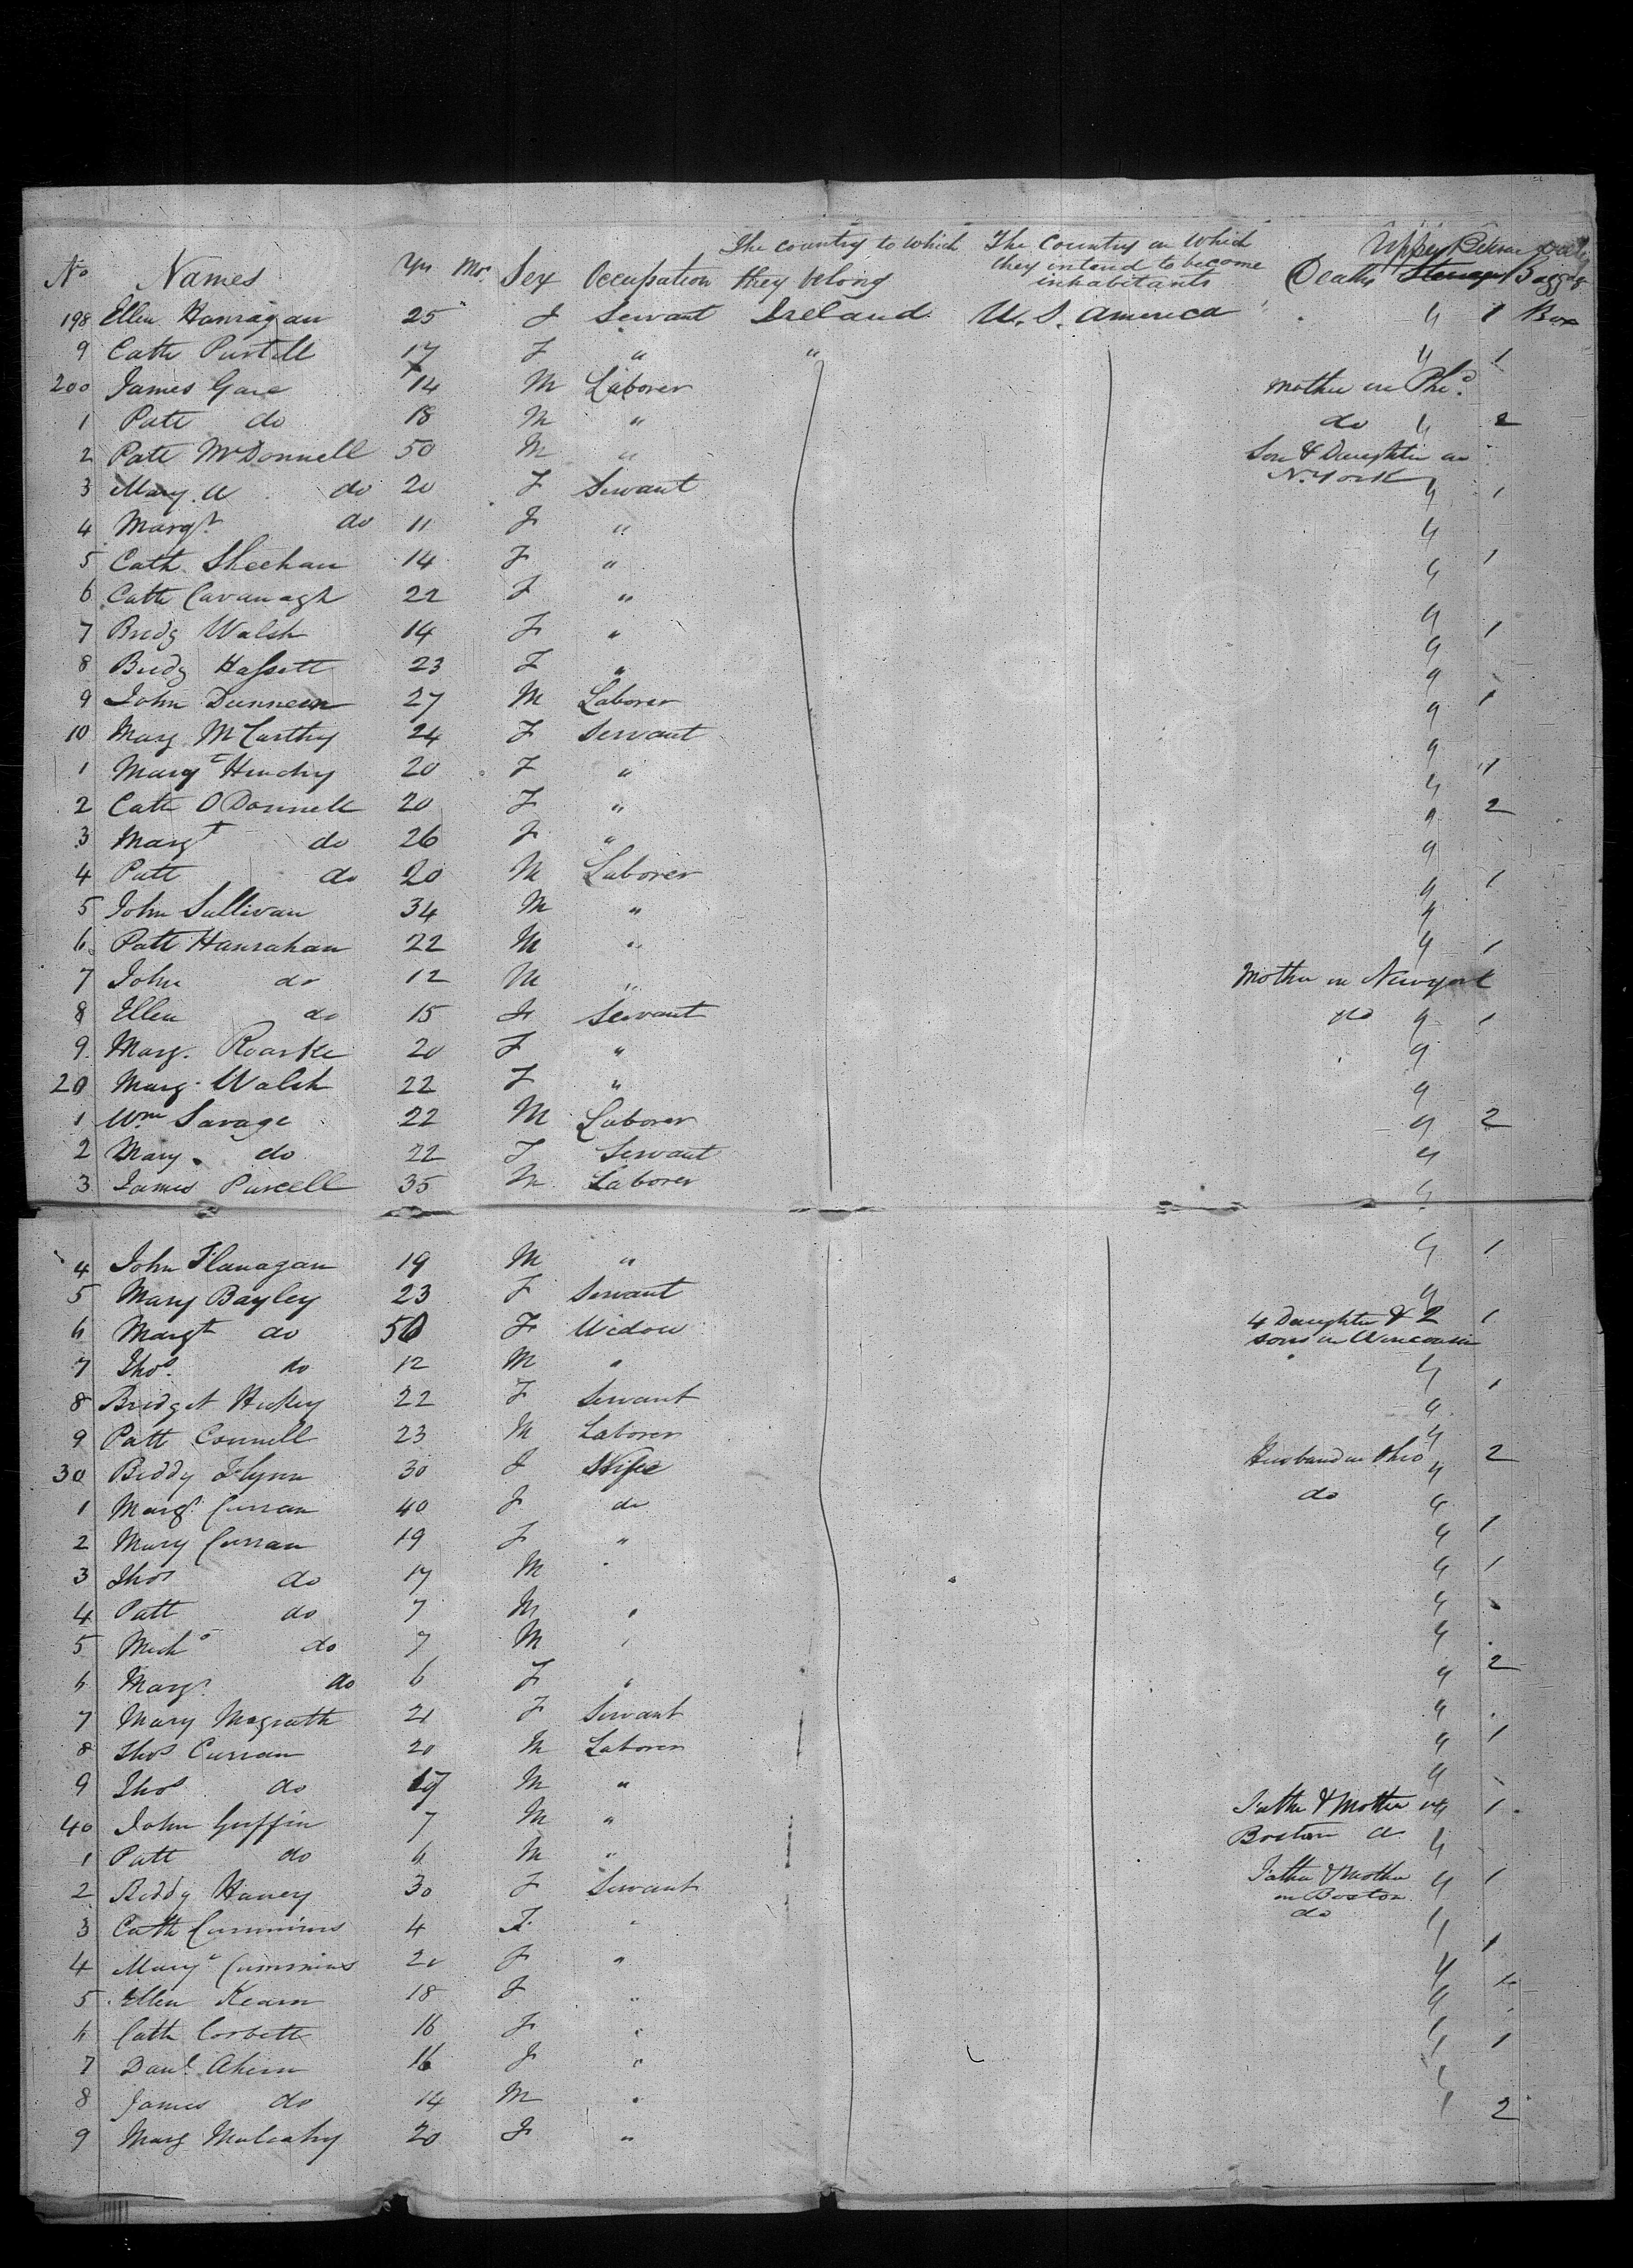 The country to which The Country in Which Upper Between Decks
No Names Yrs Mos Sex Occupation they belong they intend to become inhabitants Deaths Steerage Baggage
198 Ellen Hanragan 25 F Servant Ireland U.S. America " 1 Box
9 Cath Purtill 17 F " " " 1
200 James Gare 14 M Laborer mother in Phi.d
1 Patt do 18 M " do " 2
2 Patt McDonnell 50 M " Son & Daughter in
3 Mary A do 20 F Servant N. York " 1
4 Margt do 11 F " "
5 Cath Sheehan 14 F " " 1
6 Cath Cavanagh 22 F " "
7 Bridg Walsh 14 F " " 1
8 Bridg Hassett 23 F " "
9 John Dunneen 27 M Laborer " 1
10 Mary McCarthy 24 F Servant "
1 Margt Hendry 20 F " " 1
2 Cath O Donnell 20 F " " 2
3 Margt do 26 F " "
4 Patt do 20 M Laborer " 1
5 John Sullivan 34 M " "
6 Patt Hanrahan 22 M " " 1
7 John do 12 M " Mother in Newyork
8 Ellen do 15 F Servant do " 1
9 Marg. Roarke 20 F " "
20 Marg. Walsh 22 F " "
1 Wm Savage 22 M Laborer " 2
2 Mary do 22 F Servant "
3 James Purcell 35 M Laborer "
4 John Flanagan 19 M " " 1
5 Mary Bayley 23 F Servant "
6 Margt do 50 F Widow 4 Daughter & 2 1
sons in Winconsin
7 Thos. do 12 M " "
8 Bridget Hickey 22 F Servant " 1
9 Patt Connell 23 M Laborer "
30 Biddy Flynn 30 F Wife Husband in Ohio " 2
1 Margt. Curran 40 F do do "
2 Mary Curran 19 F " " 1
3 Thos do 17 M " " 1
4 Patt do 7 M " "
5 Michl do 7 M " "
6 Margt. do 6 F " " 2
7 Mary Mcgrath 21 F Servant "
8 Thos Curran 20 M Laborer " 1
9 Thos do 17 M " "
40 John Griffin 7 M " Father & Mother in 1
1 Patt do 6 M " Boston A "
2 Biddy Haney 30 F Servant Father & Mother " 1
in Boston
3 Cath Cummins 4 F " do "
4 Margt Cummins 20 F " " 1
5 Ellen Kearn 18 F " " 1
6 Cath Corbett 16 F " "
7 Danl. Ahern 16 F " " 1
8 James do 14 M " "
9 Marg Mulcahy 20 F " 2